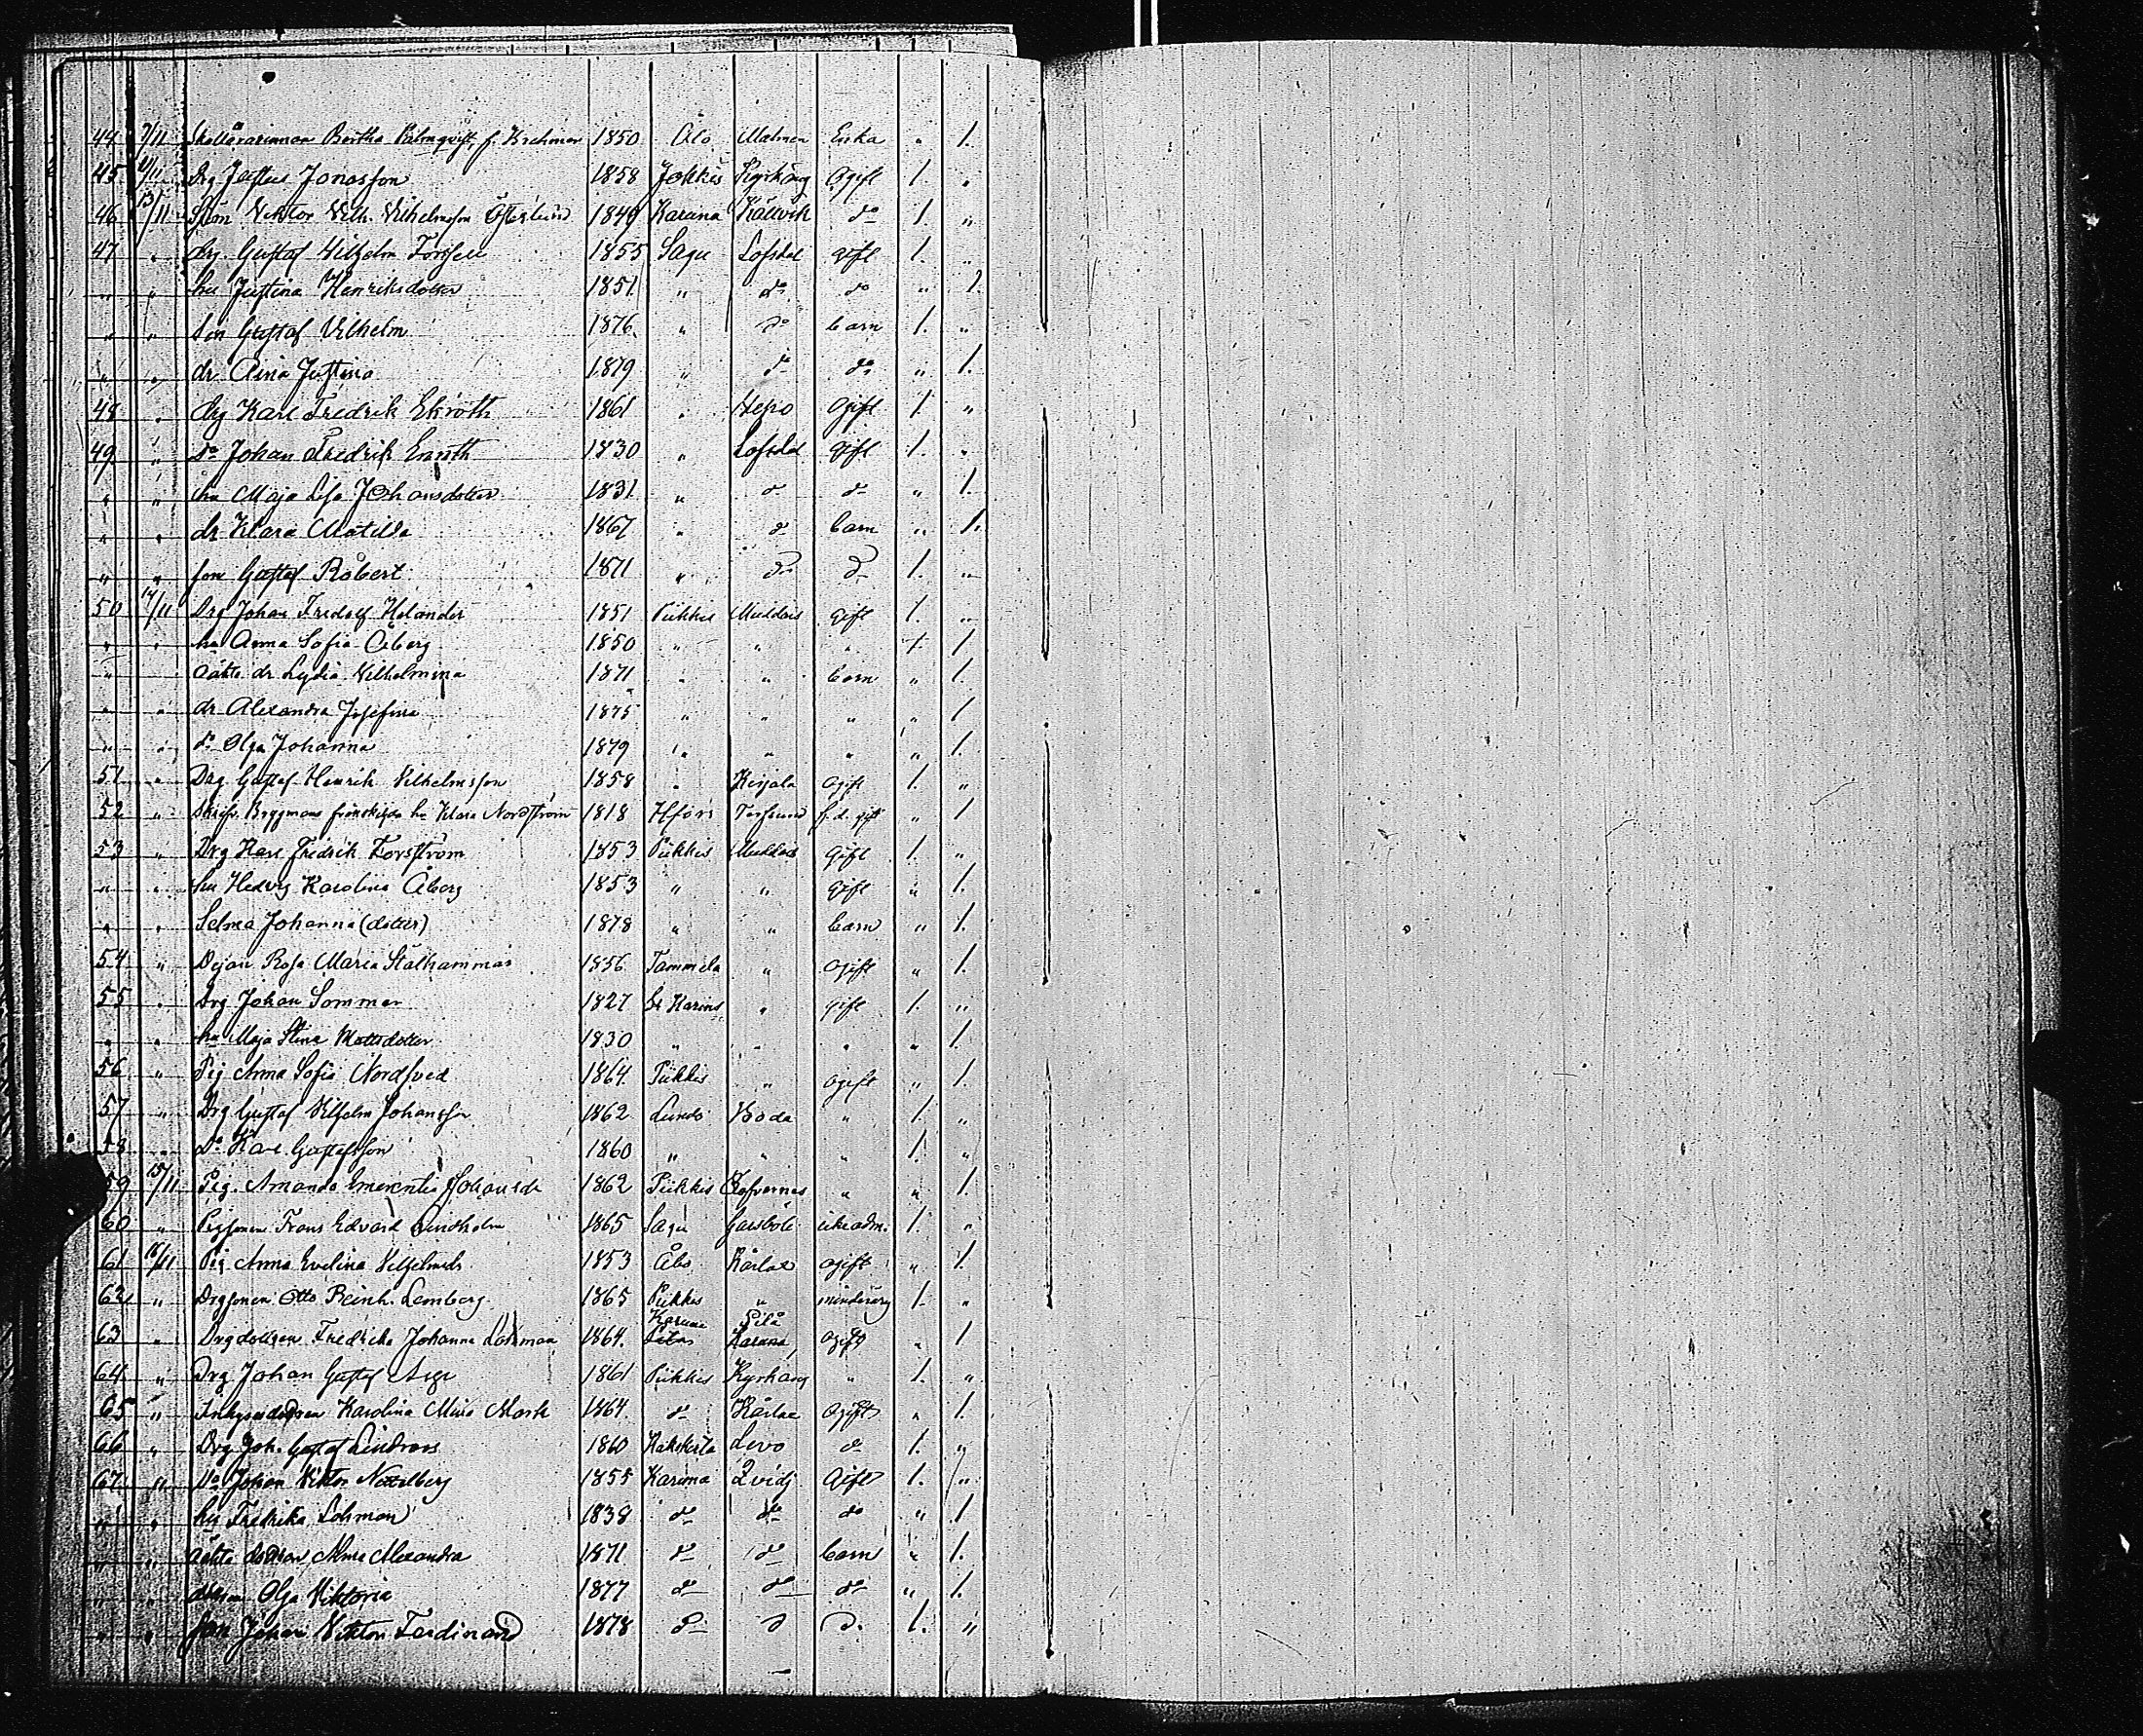 44 7/11 Bertha Palmqvist f. 1850 Åbo Malmen Enka " 1.
45 9/11 Drg Justus Jonasson 1858 Jokkis Kyrkäng Ogift 1. "
46 13/11 Viktor Vilh. Vilhelmsson Österlund 1849 Karuna Källvik do 1. "
47 " drg. Gustaf Vilhelm Forssell 1855 Sagu Lofsdal gift 1. "
" " hu Justina Henriksdotter 1851 " do do " 1.
" " son Gustaf Vilhelm 1876 " do barn 1. "
" " dr Aina Justina 1879 " do do " 1.
48 " drg Karl Fredrik Ekroth 1861 " Hepo Ogift 1. "
49 " do Johan Fredrik Enroth 1830 " Lofsdal gift 1. "
" " hu Maja Lisa Johansdotter 1831 " do do " 1.
" " dr Klara Matilda 1867 " do barn " 1.
" " son Gustaf Robert 1871 " do do 1. "
50 14/11 Drg Johan Fredolf Helander 1851 Piikkis Muddais gift 1. "
" " hu Anna Sofia Åberg 1850 " " " 1. 1
" äkta dr Lydia Vilhelmina 1871 " " barn " 1.
" " dr Alexandra Josefina 1875 " " " " 1
" " do Olga Johanna 1879 " " " " 1.
51 " Drg Gustaf Henrik Vilhelmsson 1858 " Kirjala ogift 1. "
52 " Bryggmans frånskilda hu Klara Nordström 1818 Hfors f.d. gift " 1
53 " Drg Karl Fredrik Forsström 1853 Piikkis Muddais Gift 1. "
" " hu Hedvig Karolina Åberg 1853 " " gift " 1.
" " Selma Johanna (dotter) 1878 " " barn " 1.
54 " Dejan Rosa Maria Stålhammar 1856 Tammela " ogift " 1.
55 " Drg Johan Sommar 1827 St Karins " gift 1. "
" " hu Maja Stina Mattsdotter 1830 " " " " 1.
56 " Pig Anna Sofia Nordsved 1864 Piikkis " ogift " 1.
57 " Drg Gustaf Vilhelm Johansson 1862 Lundo Boda " 1. "
58 " Do Karl Gustafsson 1860 " " " 1. "
59 15/11 Pig. Amanda Emerentia Johansdr 1862 Piikkis " " 1.
60 " Pigsonen Frans Edvard Lindholm 1865 Sagu Garsböle icke adm. 1. "
61 18/11 Pig Anna Evelina Vilhelmsdr 1853 Åbo Kårlax ogift " 1.
62 " Drgsonen Otto Reinh. Lemberg 1865 Piikkis " minderårig 1. "
Karuna Pilå
63 " Drgdottren Fredrika Johanna Lohman 1864. Karuna, ogift " 1
64 " Drg Johan Gustaf Arge 1861 Piikkis Kyrkäng " 1. "
65 " Karolina Mina Mark 1864. do Kårlax Ogift " 1.
66 " Drg Joh. Gustaf Lindroos 1860 Kakskerta Levo do 1. "
67 " Do Johan Viktor Nettelberg 1855 Karuna Qvidj Gift 1. "
" " hu Fredrika Lohman 1838 do do do " 1
" " äkta dottran Alma Alexandra 1871 do do barn " 1.
" " dottran Olga Viktoria 1877 do do do " 1.
" " son Johan Viktor Ferdinand 1878 do do do. 1. "